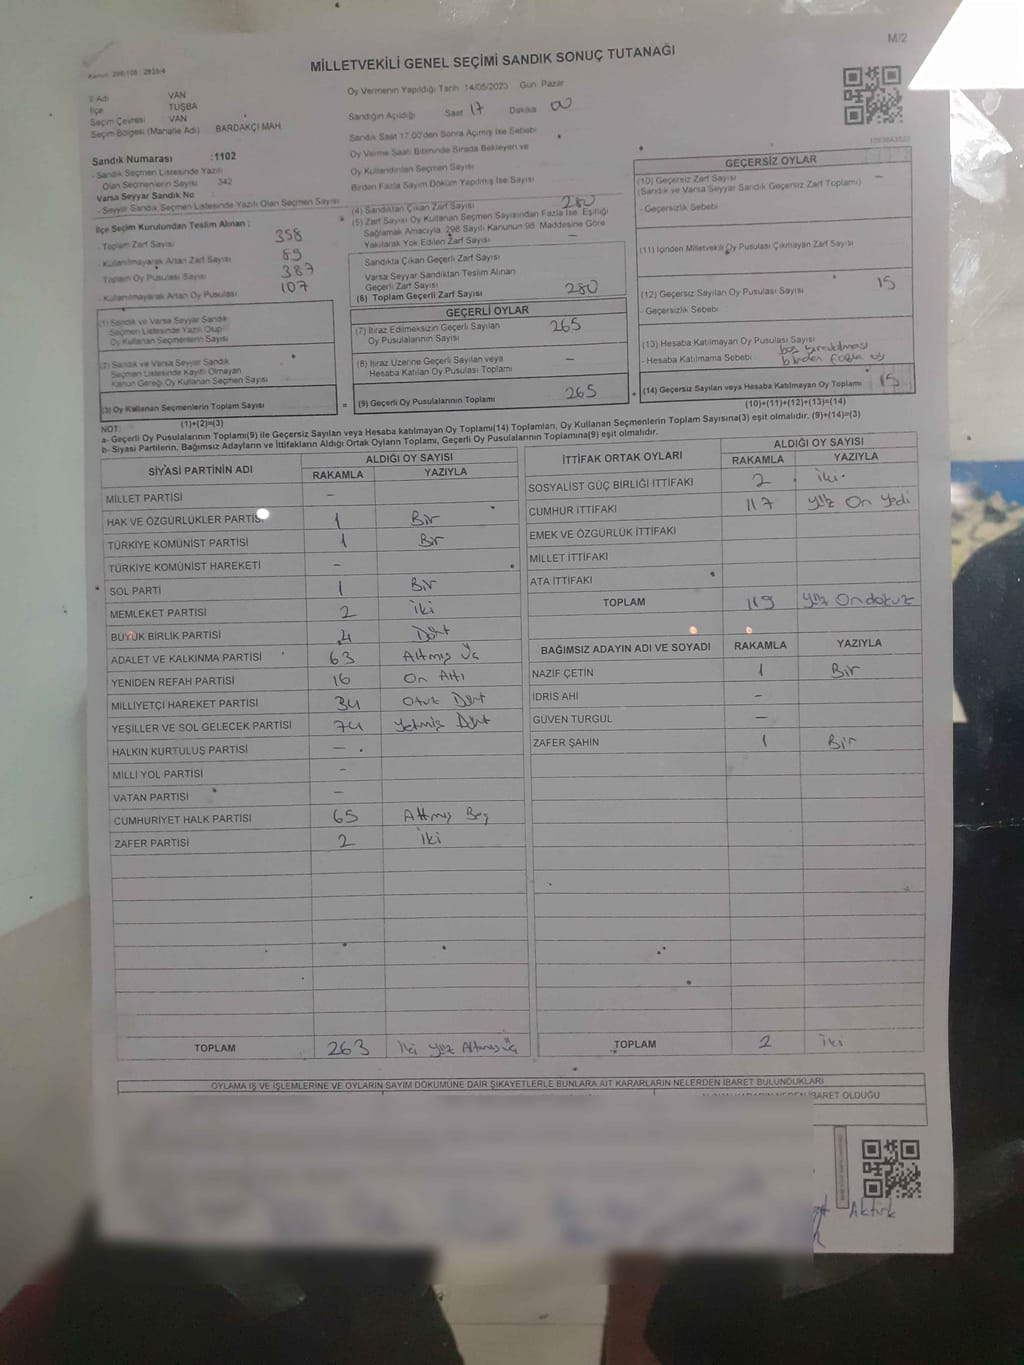 M/2
MİLLETVEKİLİ GENEL SEÇİMİ SANDIK SONUÇ TUTANAĞI
İl Adı VAN
İlçe TUŞBA
Seçim Çevresi VAN
Seçim Bölgesi (Mahalle Adı) BARDAKÇI MAH
Sandık Numarası :1102
- Sandık Seçmen Listesinde Yazılı
Olan Seçmenlerin Sayısı 342
Varsa Seyyar Sandık No
- Seyyar Sandık Seçmen Listesinde Yazılı Olan Seçmen Sayısı
İlçe Seçim Kurulundan Teslim Alınan :
- Toplam Zarf Sayısı 358
- Kullanılmayarak Artan Zarf Sayısı 89
Toplam Oy Pusulası Sayısı 387
- Kullanılmayarak Artan Oy Pusulası 107
(1) Sandık ve Varsa Seyyar Sandık
Seçmen Listesinde Yazılı Olup
Oy Kullanan Seçmenlerin Sayısı
(2) Sandık ve Varsa Seyyar Sandık
Seçmen Listesinde Kayıtlı Olmayan
Kanun Gereği Oy Kullanan Seçmen Sayısı
(3) Oy Kullanan Seçmenlerin Toplam Sayısı
(1)+(2)=(3)
Oy Vermenin Yapıldığı Tarih 14/05/2023 Gün: Pazar
Sandığın Açıldığı Saat 17 Dakika 00
Sandık Saat 17:00'den Sonra Açılmış İse Sebebi
Oy Verme Saati Bitiminde Sırada Bekleyen ve
Oy Kullandırılan Seçmen Sayısı
Birden Fazla Sayım Döküm Yapılmış İse Sayısı
(4) Sandıktan Çıkan Zarf Sayısı 280
(5) Zarf Sayısı Oy Kullanan Seçmen Sayısından Fazla İse, Eşitliği
Sağlamak Amacıyla, 298 Sayılı Kanunun 98. Maddesine Göre
Yakılarak Yok Edilen Zarf Sayısı –
Sandıkta Çıkan Geçerli Zarf Sayısı
Varsa Seyyar Sandıktan Teslim Alınan
Geçerli Zarf Sayısı
(6) Toplam Geçerli Zarf Sayısı 280
GEÇERLİ OYLAR
(7) İtiraz Edilmeksizin Geçerli Sayılan
Oy Pusulalarının Sayısı 265
(8) İtiraz Üzerine Geçerli Sayılan veya
Hesaba Katılan Oy Pusulası Toplamı –
= (9) Geçerli Oy Pusulalarının Toplamı 265 +
GEÇERSİZ OYLAR
(10) Geçersiz Zarf Sayısı –
(Sandık ve Varsa Seyyar Sandık Geçersiz Zarf Toplamı)
- Geçersizlik Sebebi
(11) İçinden Milletvekili Oy Pusulası Çıkmayan Zarf Sayısı
(12) Geçersiz Sayılan Oy Pusulası Sayısı 15
- Geçersizlik Sebebi
(13) Hesaba Katılmayan Oy Pusulası Sayısı
- Hesaba Katılmama Sebebi birden fazla oy
(14) Geçersiz Sayılan veya Hesaba Katılmayan Oy Toplamı 15
(10)+(11)+(12)+(13)=(14)
NOT:
a- Geçerli Oy Pusulalarının Toplamı(9) ile Geçersiz Sayılan veya Hesaba katılmayan Oy Toplamı(14) Toplamları, Oy Kullanan Seçmenlerin Toplam Sayısına(3) eşit olmalıdır. (9)+(14)=(3)
b- Siyasi Partilerin, Bağımsız Adayların ve İttifakların Aldığı Ortak Oyların Toplamı, Geçerli Oy Pusulalarının Toplamına(9) eşit olmalıdır.
SİYASİ PARTİNİN ADI ALDIĞI OY SAYISI
RAKAMLA YAZIYLA
MİLLET PARTİSİ –
HAK VE ÖZGÜRLÜKLER PARTİSİ 1 Bir
TÜRKİYE KOMÜNİST PARTİSİ 1 Bir
TÜRKİYE KOMÜNİST HAREKETİ –
SOL PARTİ 1 Bir
MEMLEKET PARTİSİ 2 iki
BÜYÜK BİRLİK PARTİSİ 4 Dört
ADALET VE KALKINMA PARTİSİ 63 Altmış Üç
YENİDEN REFAH PARTİSİ 16 On Altı
MİLLİYETÇİ HAREKET PARTİSİ 34 Otuz Dört
YEŞİLLER VE SOL GELECEK PARTİSİ 74 Yetmiş Dört
HALKIN KURTULUŞ PARTİSİ –
MİLLİ YOL PARTİSİ –
VATAN PARTİSİ –
CUMHURİYET HALK PARTİSİ 65 Altmış Beş
ZAFER PARTİSİ 2 iki
TOPLAM 263 iki yüz Altmış üç
İTTİFAK ORTAK OYLARI ALDIĞI OY SAYISI
RAKAMLA YAZIYLA
SOSYALİST GÜÇ BİRLİĞİ İTTİFAKI 2 iki
CUMHUR İTTİFAKI 117 yüz On yedi
EMEK VE ÖZGÜRLÜK İTTİFAKI
MİLLET İTTİFAKI
ATA İTTİFAKI
TOPLAM 119 yüz Ondokuz
BAĞIMSIZ ADAYIN ADI VE SOYADI RAKAMLA YAZIYLA
NAZİF ÇETİN 1 Bir
İDRİS AHİ –
GÜVEN TURGUL –
ZAFER ŞAHİN 1 Bir
TOPLAM 2 iki
OYLAMA İŞ VE İŞLEMLERİNE VE OYLARIN SAYIM DÖKÜMÜNE DAİR ŞİKAYETLERLE BUNLARA AİT KARARLARIN NELERDEN İBARET BULUNDUKLARI
İBARET OLDUĞU
Aktürk